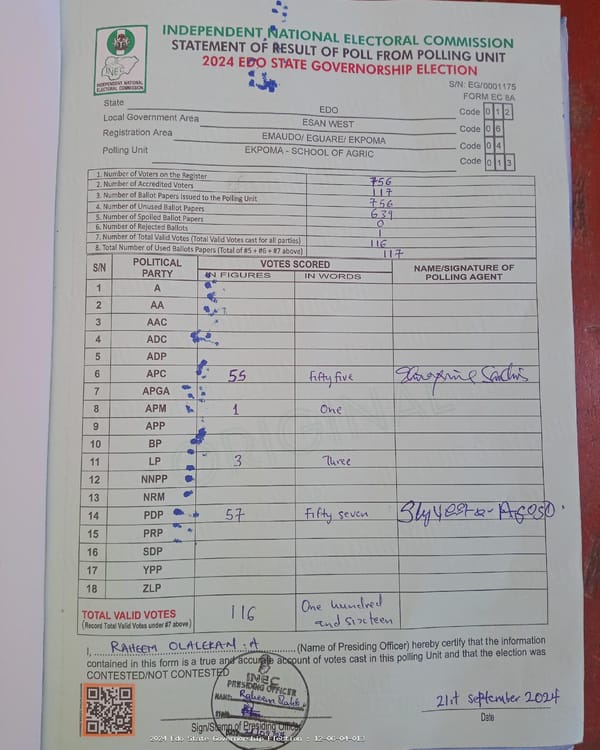 INDEPENDENT NATIONAL ELECTORAL COMMISSION
STATEMENT OF RESULT OF POLL FROM POLLING UNIT
2024 EDO STATE GOVERNORSHIP ELECTION
INEC
INDEPENDENT NATIONAL ELECTORAL COMMISSION
S/N: EG/0001175
FORM EC 8A
State EDO Code 0 1 2
Local Government Area ESAN WEST Code 0 6
Registration Area EMAUDO/ EGUARE/ EKPOMA Code 0 4
Polling Unit EKPOMA - SCHOOL OF AGRIC Code 0 1 3
1. Number of Voters on the Register 756
2. Number of Accredited Voters 117
3. Number of Ballot Papers issued to the Polling Unit 756
4. Number of Unused Ballot Papers 639
5. Number of Spoiled Ballot Papers 0
6. Number of Rejected Ballots 1
7. Number of Total Valid Votes (Total Valid Votes cast for all parties) 116
8. Total Number of Used Ballots Papers (Total of #5 + #6 + #7 above) 117
S/N POLITICAL PARTY VOTES SCORED NAME/SIGNATURE OF POLLING AGENT
IN FIGURES IN WORDS
1 A
2 AA
3 AAC
4 ADC
5 ADP
6 APC 55 Fifty five
7 APGA
8 APM 1 One
9 APP
10 BP
11 LP 3 Three
12 NNPP
13 NRM
14 PDP 57 Fifty seven
15 PRP
16 SDP
17 YPP
18 ZLP
TOTAL VALID VOTES 116 One hundred and sixteen
(Record Total Valid Votes under #7 above)
I, RAHEEM OLALEKAN .A (Name of Presiding Officer) hereby certify that the information
contained in this form is a true and accurate account of votes cast in this polling Unit and that the election was
CONTESTED/NOT CONTESTED
INEC
PRESIDING OFFICER
NAME: Raheem
SIGN:
21st September 2024
Sign/Stamp of Presiding Officer
Date
2024 Edo State Governorship Election : 12-06-04-013